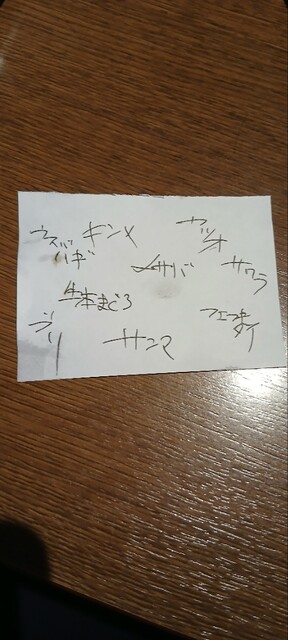 ウスバハギ
キンメ
カツオ
〆サバ
サワラ
生本まぐろ
ブリ
サンマ
フエフキ
ダイ